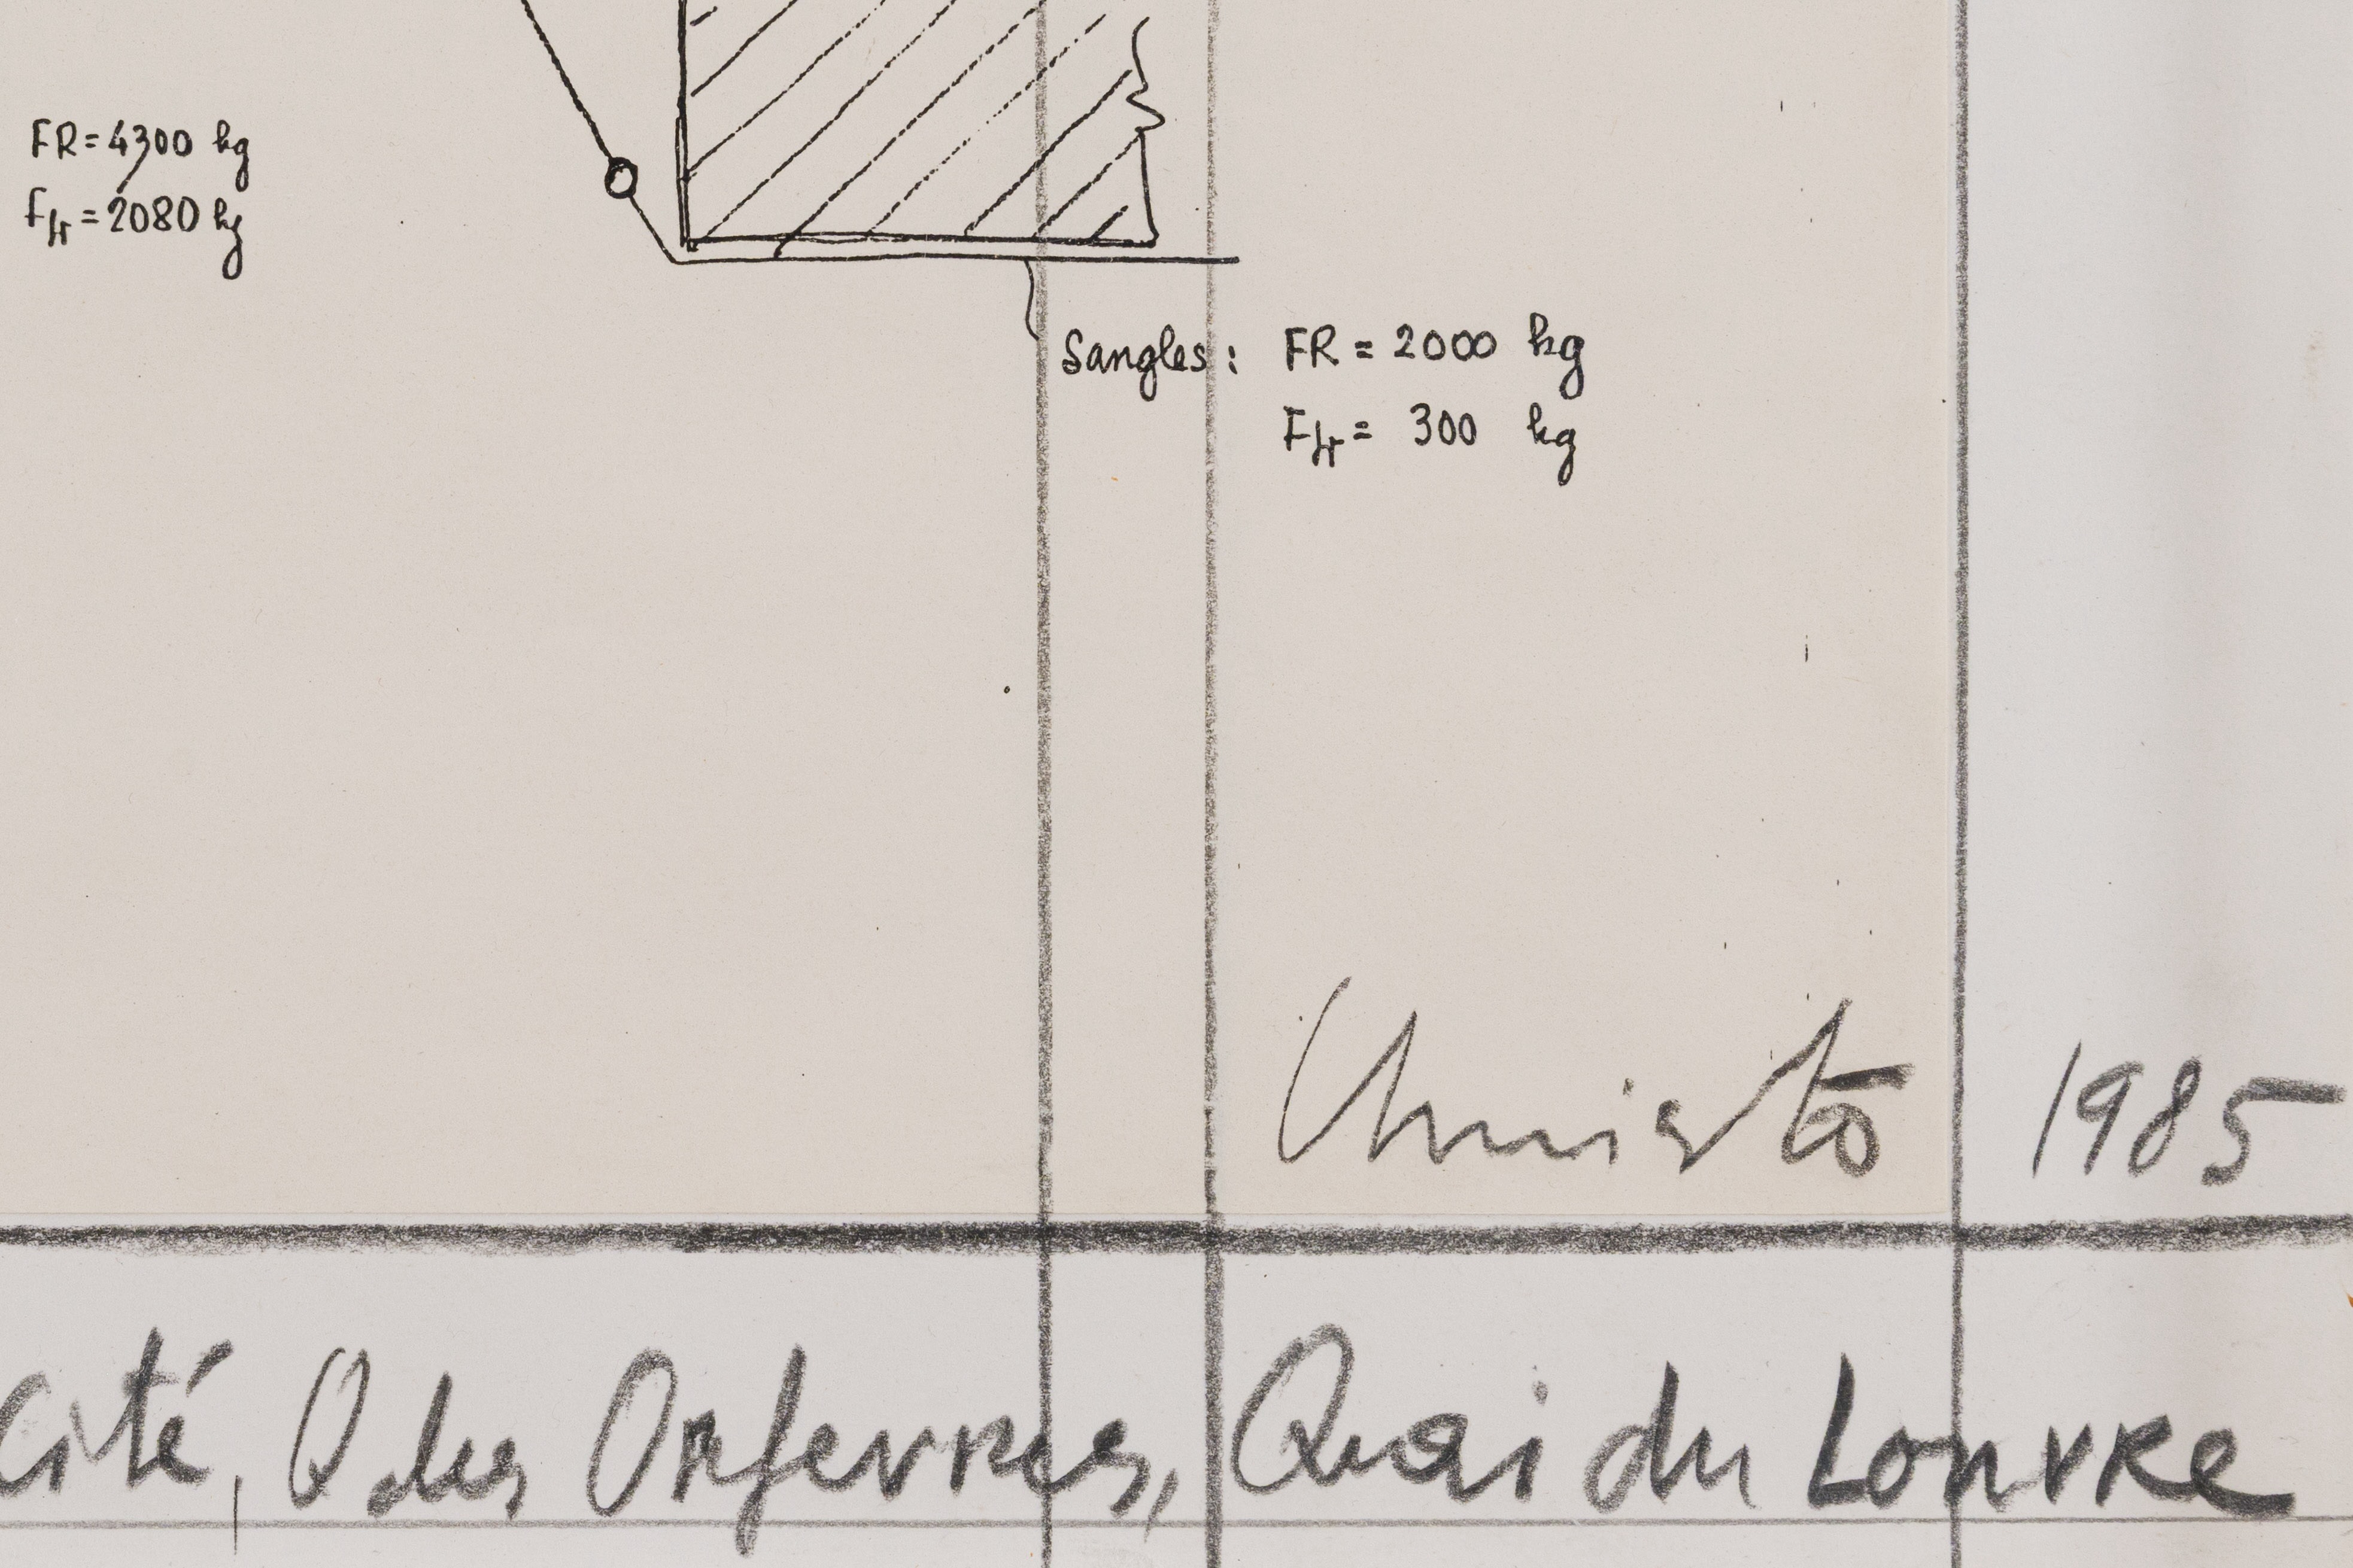 FR = 4300 kg
Ftr = 2080 kg
Sangles : FR = 2000 kg
Ftr = 300 kg
Christo 1985
Cité, Q des Orfevres, Quai du Louvre